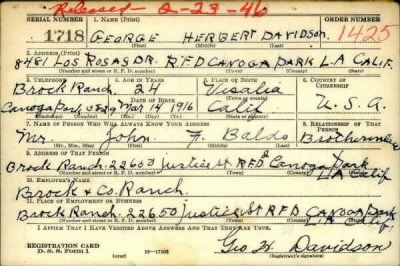 Released 2-23-46
SERIAL NUMBER 1. NAME (Print) ORDER NUMBER
1718 GEORGE HERBERT DAVIDSON 1425
(First) (Middle) (Last)
2. ADDRESS (Print)
8481 LOS ROSAS DR. RFD CANOGA PARK L.A CALIF.
(Number and street or R. F. D. number) (Town) (County) (State)
3. TELEPHONE 4. AGE IN YEARS 5. PLACE OF BIRTH 6. COUNTRY OF CITIZENSHIP
Brock Ranch 24 Visalia
DATE OF BIRTH
Canoga Park Mar 14 1916 Calif. U.S.A.
(Exchange) (Number) (Mo.) (Day) (Yr.) (State or country)
7. NAME OF PERSON WHO WILL ALWAYS KNOW YOUR ADDRESS 8. RELATIONSHIP OF THAT PERSON
Mr. John F. Baldo
(Mr., Mrs., Miss) (First) (Middle) (Last)
9. ADDRESS OF THAT PERSON
Brock Ranch 22650 Justice St RFD Canoga Park LA Calif
(Number and street or R. F. D. number) (Town) (County) (State)
10. EMPLOYER'S NAME
Brock & Co. Ranch.
11. PLACE OF EMPLOYMENT OR BUSINESS
Brock Ranch. 22650 Justice St RFD CANOGA Park LA Calif.
(Number and street or R. F. D. number) (Town) (County) (State)
I AFFIRM THAT I HAVE VERIFIED ABOVE ANSWERS AND THAT THEY ARE TRUE.
REGISTRATION CARD
D. S. S. Form 1 Geo H. Davidson
(Registrant's signature)